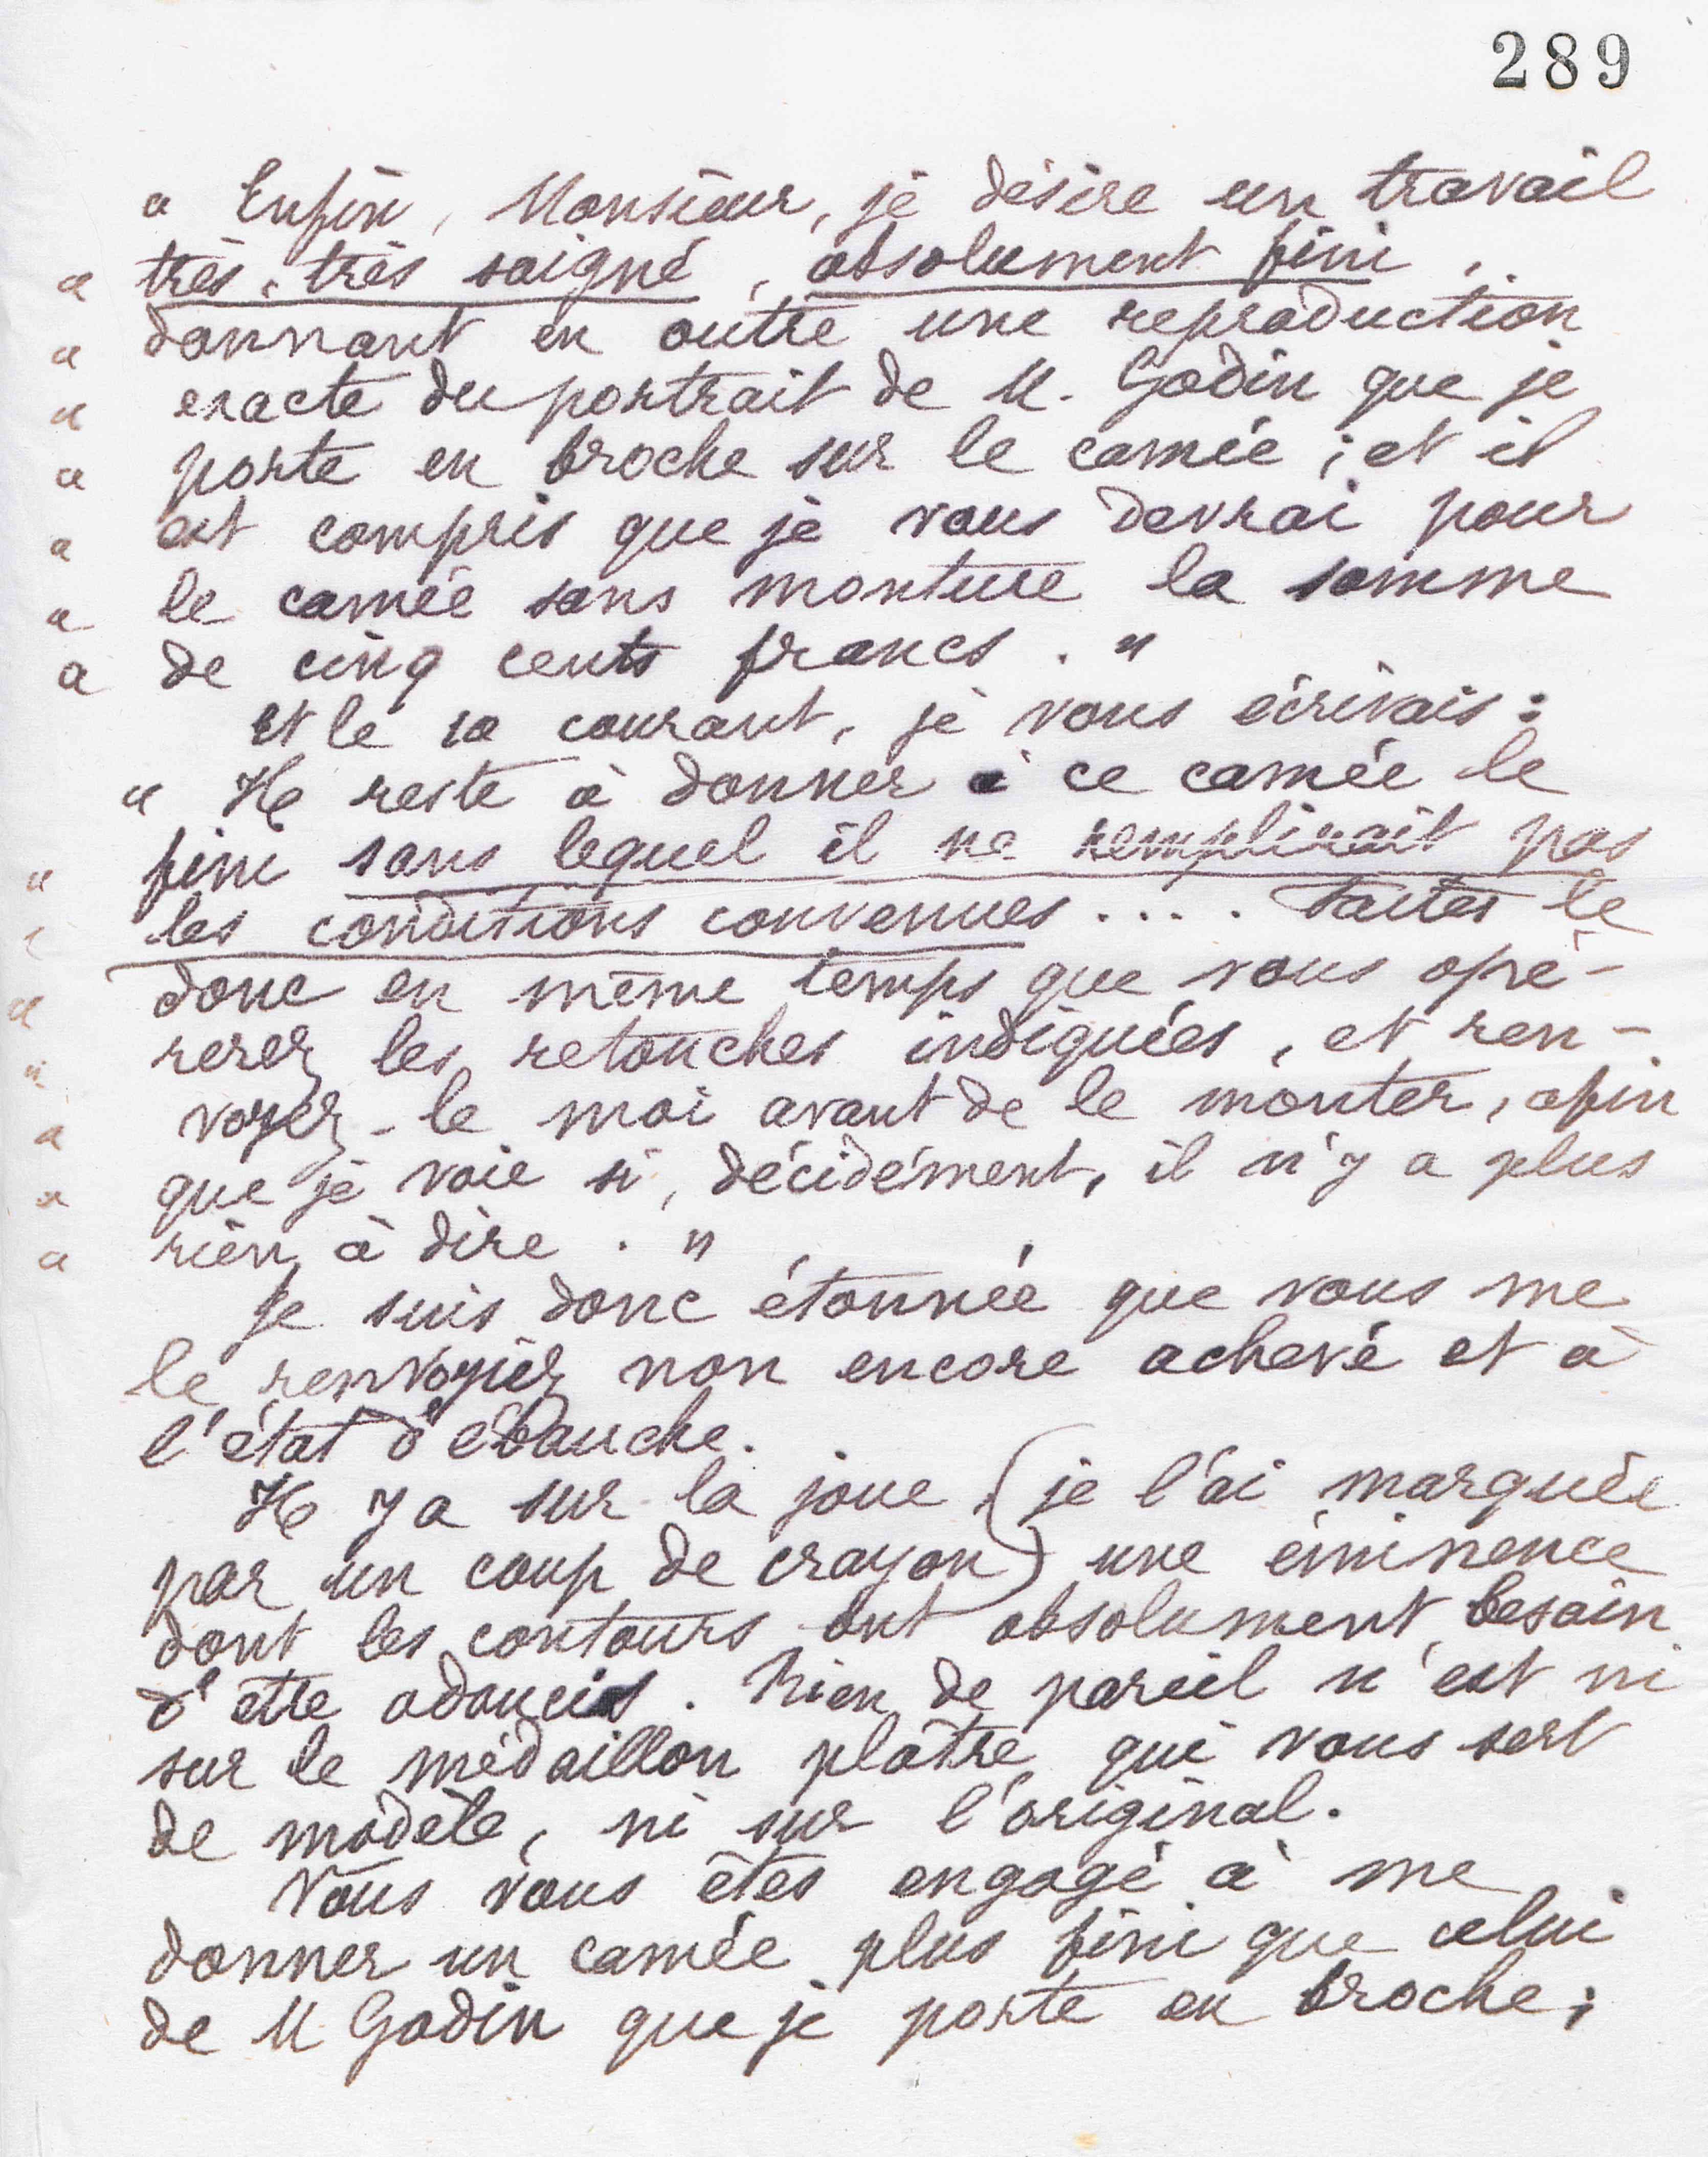 289
" Enfin, Monsieur, je désire un travail
" très, très soigné, absolument fini,
" donnant en outre une reproduction
" exacte du portrait de M. Godin que je
" porte en broche sur le camée ; et il
" est compris que je vous devrai pour
" le camée sans monture la somme
" de cinq cents francs. "
et le 10 courant, je vous écrivais :
" Il reste à donner à ce camée le
" fini sans lequel il ne remplirait pas
" les conditions convenues.... Faites le
" donc en même temps que vous opé-
" rerez les retouches indiquées, et ren-
" voyez-le moi avant de le monter, afin
" que je voie si, décidément, il n'y a plus
" rien à dire. "
Je suis donc étonnée que vous me
le renvoyiez non encore achevé et à
l'état d'ébauche.
Il y a sur la joue (je l'ai marquée
par un coup de crayon) une éminence
dont les contours ont absolument besoin
d'être adoucis. Rien de pareil n'est ni
sur le médaillon plâtre qui vous sert
de modèle, ni sur l'original.
Vous vous êtes engagé à me
donner un camée plus fini que celui
de M Godin que je porte en broche ;